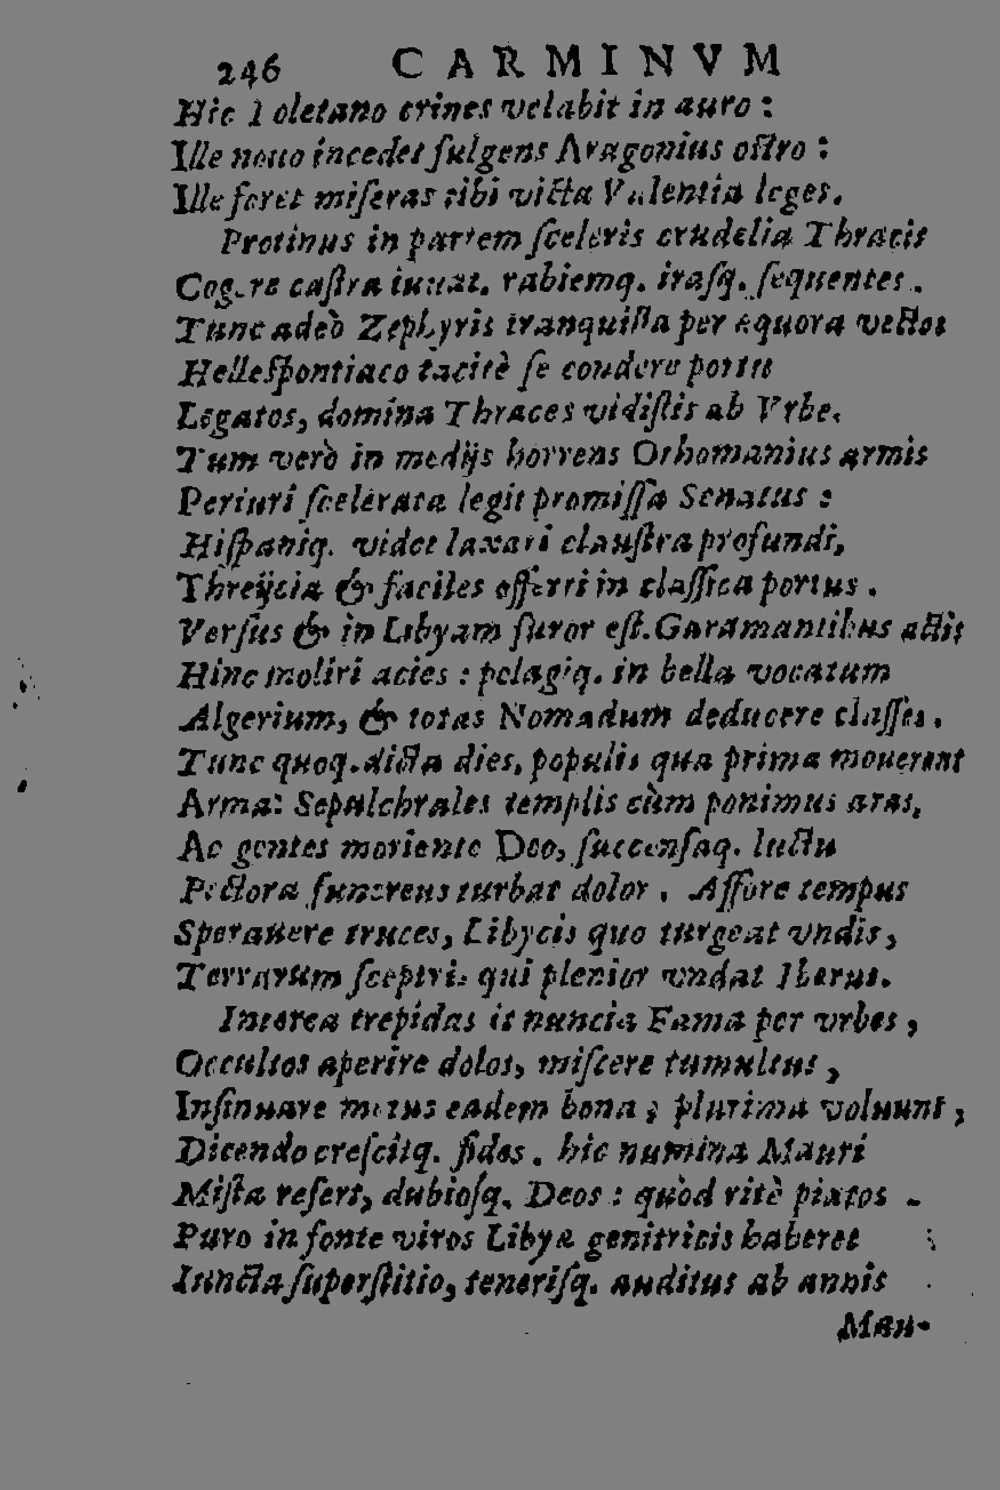 246 CARMINVM
Hic Toletano crines velabit in auro :
Ille nouo incedet fulgens Aragonius ostro :
Ille feret miseras tibi victa Valentia leges.
Protinus in partem sceleris crudelia Thracis
Cogere castra iuuat. rabiemq. irasq. sequentes.
Tunc adeò Zephyris tranquilla per æquora vectos
Hellespontiaco tacitè se condere portu
Legatos, domina Thraces vidistis ab Vrbe.
Tum verò in medijs horrens Othomanius armis
Periuri scelerata legit promissa Senatus :
Hispaniq. videt laxari claustra profundi,
Threijcia & faciles offerri in classica portus.
Versus & in Libyam furor est. Garamantibus actis
Hinc moliri acies : pelagiq. in bella vocatum
Algerium, & totas Nomadum deducere classes.
Tunc quoq. dicta dies, populis qua prima mouerent
Arma: Sepulchrales templis cùm ponimus aras,
Ac gentes moriente Deo, succensaq. luctu
Pectora funereus turbat dolor. Affore tempus
Sperauere truces, Libycis quo turgeat vndis,
Terrarum sceptris qui plenior vndat Iberus.
Interea trepidas it nuncia Fama per vrbes,
Occultos aperire dolos, miscere tumultus,
Insinuare metus eadem bona; plurima voluunt,
Dicendo crescitq. fides. hic numina Mauri
Mista refert, dubiosq. Deos : quòd ritè piatos
Puro in fonte viros Libyæ genitricis haberet
Iuncta superstitio, tenerisq. auditus ab annis
Mau-